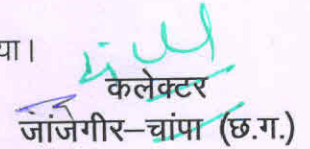 या।
कलेक्टर
जांजगीर–चांपा (छ.ग.)